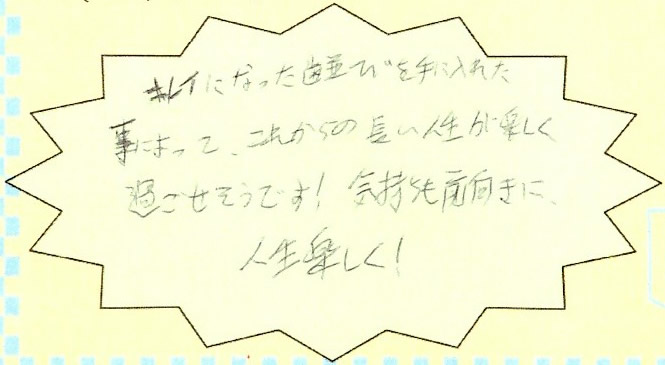 キレイになった歯並びを手に入れた
事によって、これからの長い人生が楽しく
過ごせそうです！気持ちも前向きに、
人生楽しく！